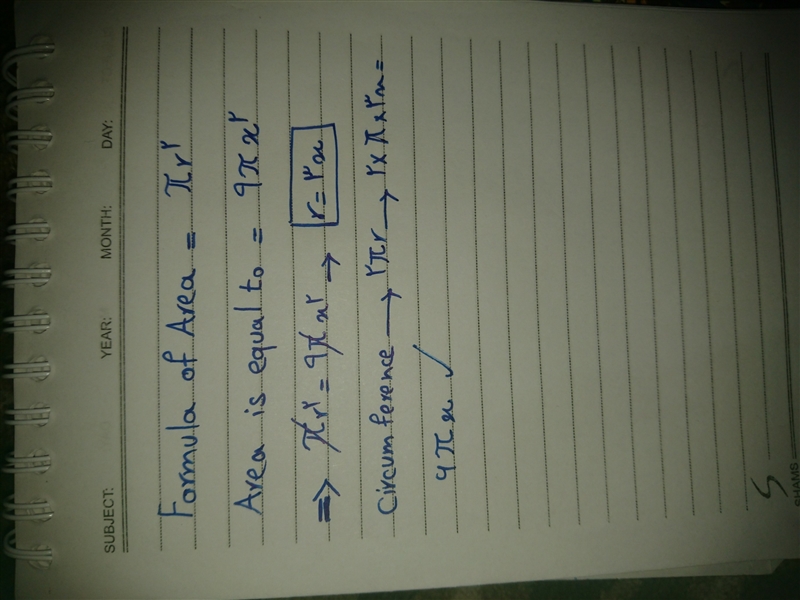 SUBJECT: YEAR: MONTH: DAY:
Formula of Area = πr۲
Area is equal to = ۹πx۲
⇒ πr۲ = ۹πx۲ → r = ۳x
Circumference → ۲πr → ۲×π×۳x =
۶πx ✓
SHAMS